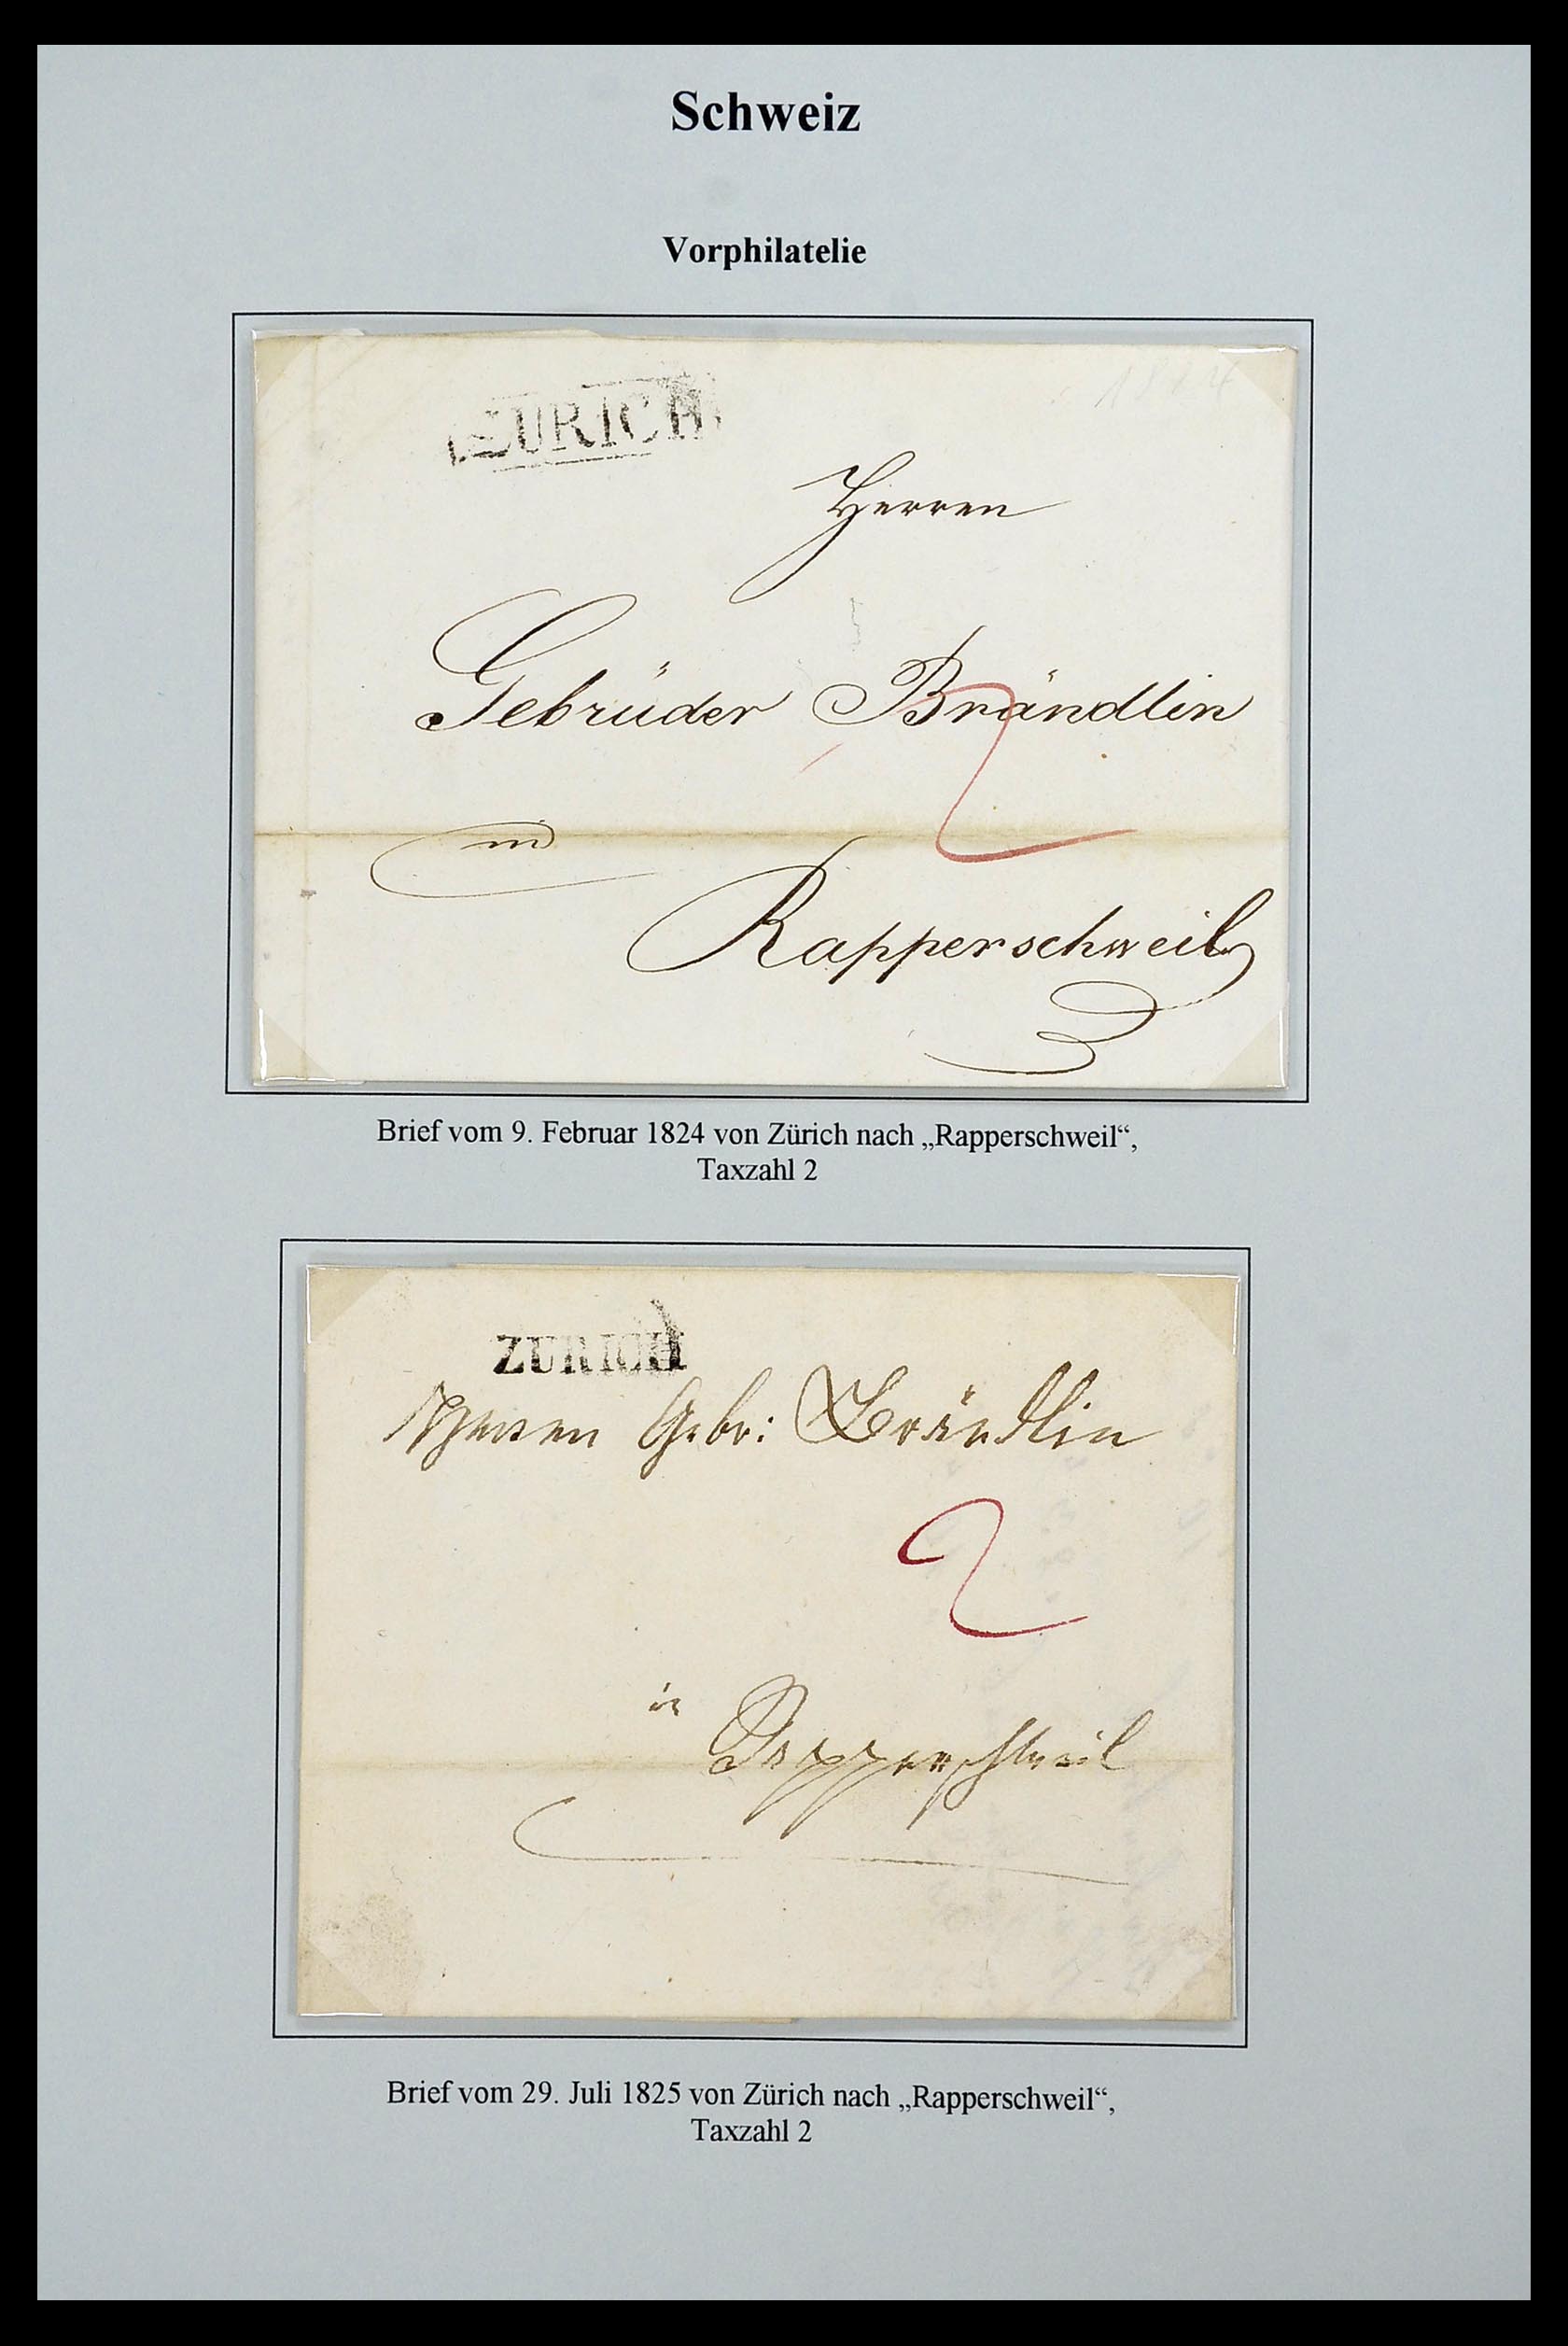 Schweiz
Vorphilatelie
ZURICH
1824
Herren
Gebrüder Brändlin
2
in
Rapperschweil
Brief vom 9. Februar 1824 von Zürich nach „Rapperschweil“,
Taxzahl 2
ZURICH
Herren Gebr: Brändlin
2
in Rapperschweil
Brief vom 29. Juli 1825 von Zürich nach „Rapperschweil“,
Taxzahl 2